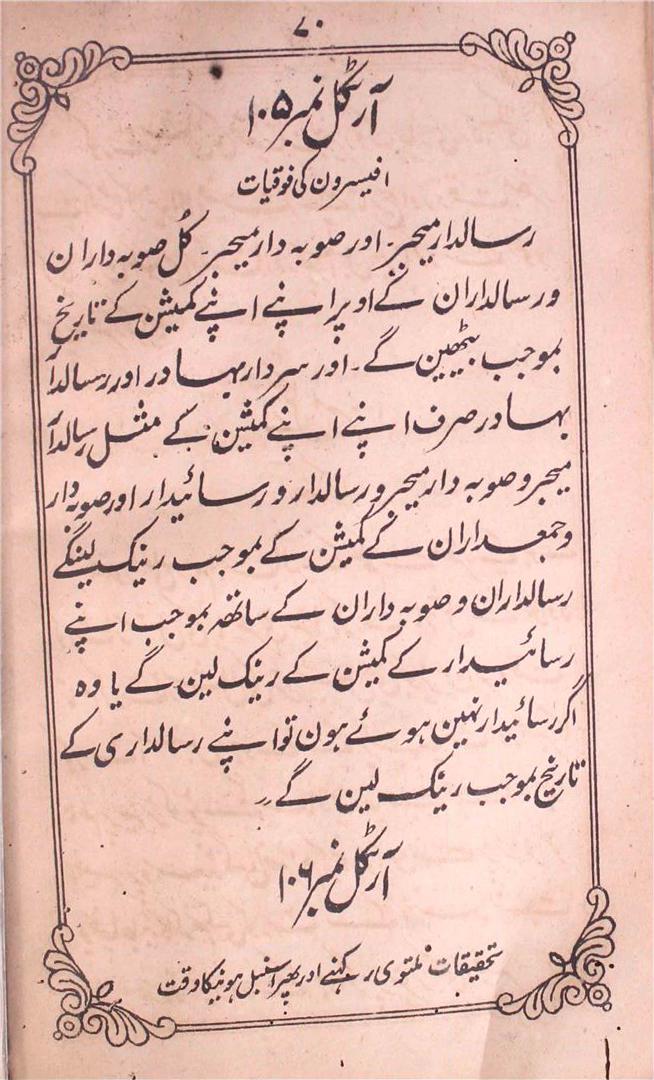 ۷۰
آرٹکل نمبر ۱۰۵
افیسرون کی فوقیات
رسالدار میجر۔ اور صوبہ دار میجر۔ کُل صوبہ داران
و رسالداران کے اوپر اپنے اپنے کمیشن کے تاریخ
بموجب بیٹھین گے۔ اور سردار بہادر اور رسالدار
بہادر صرف اپنے اپنے کمیشن کے مثل رسالدار
میجر و صوبہ دار میجر و رسالدار و رسائیدار اور صوبہ دار
و جمعداران کے کمیشن کے بموجب رینک لینگے
رسالداران و صوبہ داران کے ساتھ بموجب اپنے
رسائیدار کے کمیشن کے رینک لین گے یا وہ
اگر رسائیدار نہین ہوئے ہون تو اپنے رسالداری کے
تاریخ بموجب رینک لین گے۔
آرٹکل نمبر ۱۰۶
تحقیقات ملتوی رکہنے اور پھر اسنبل ہونیکا وقت